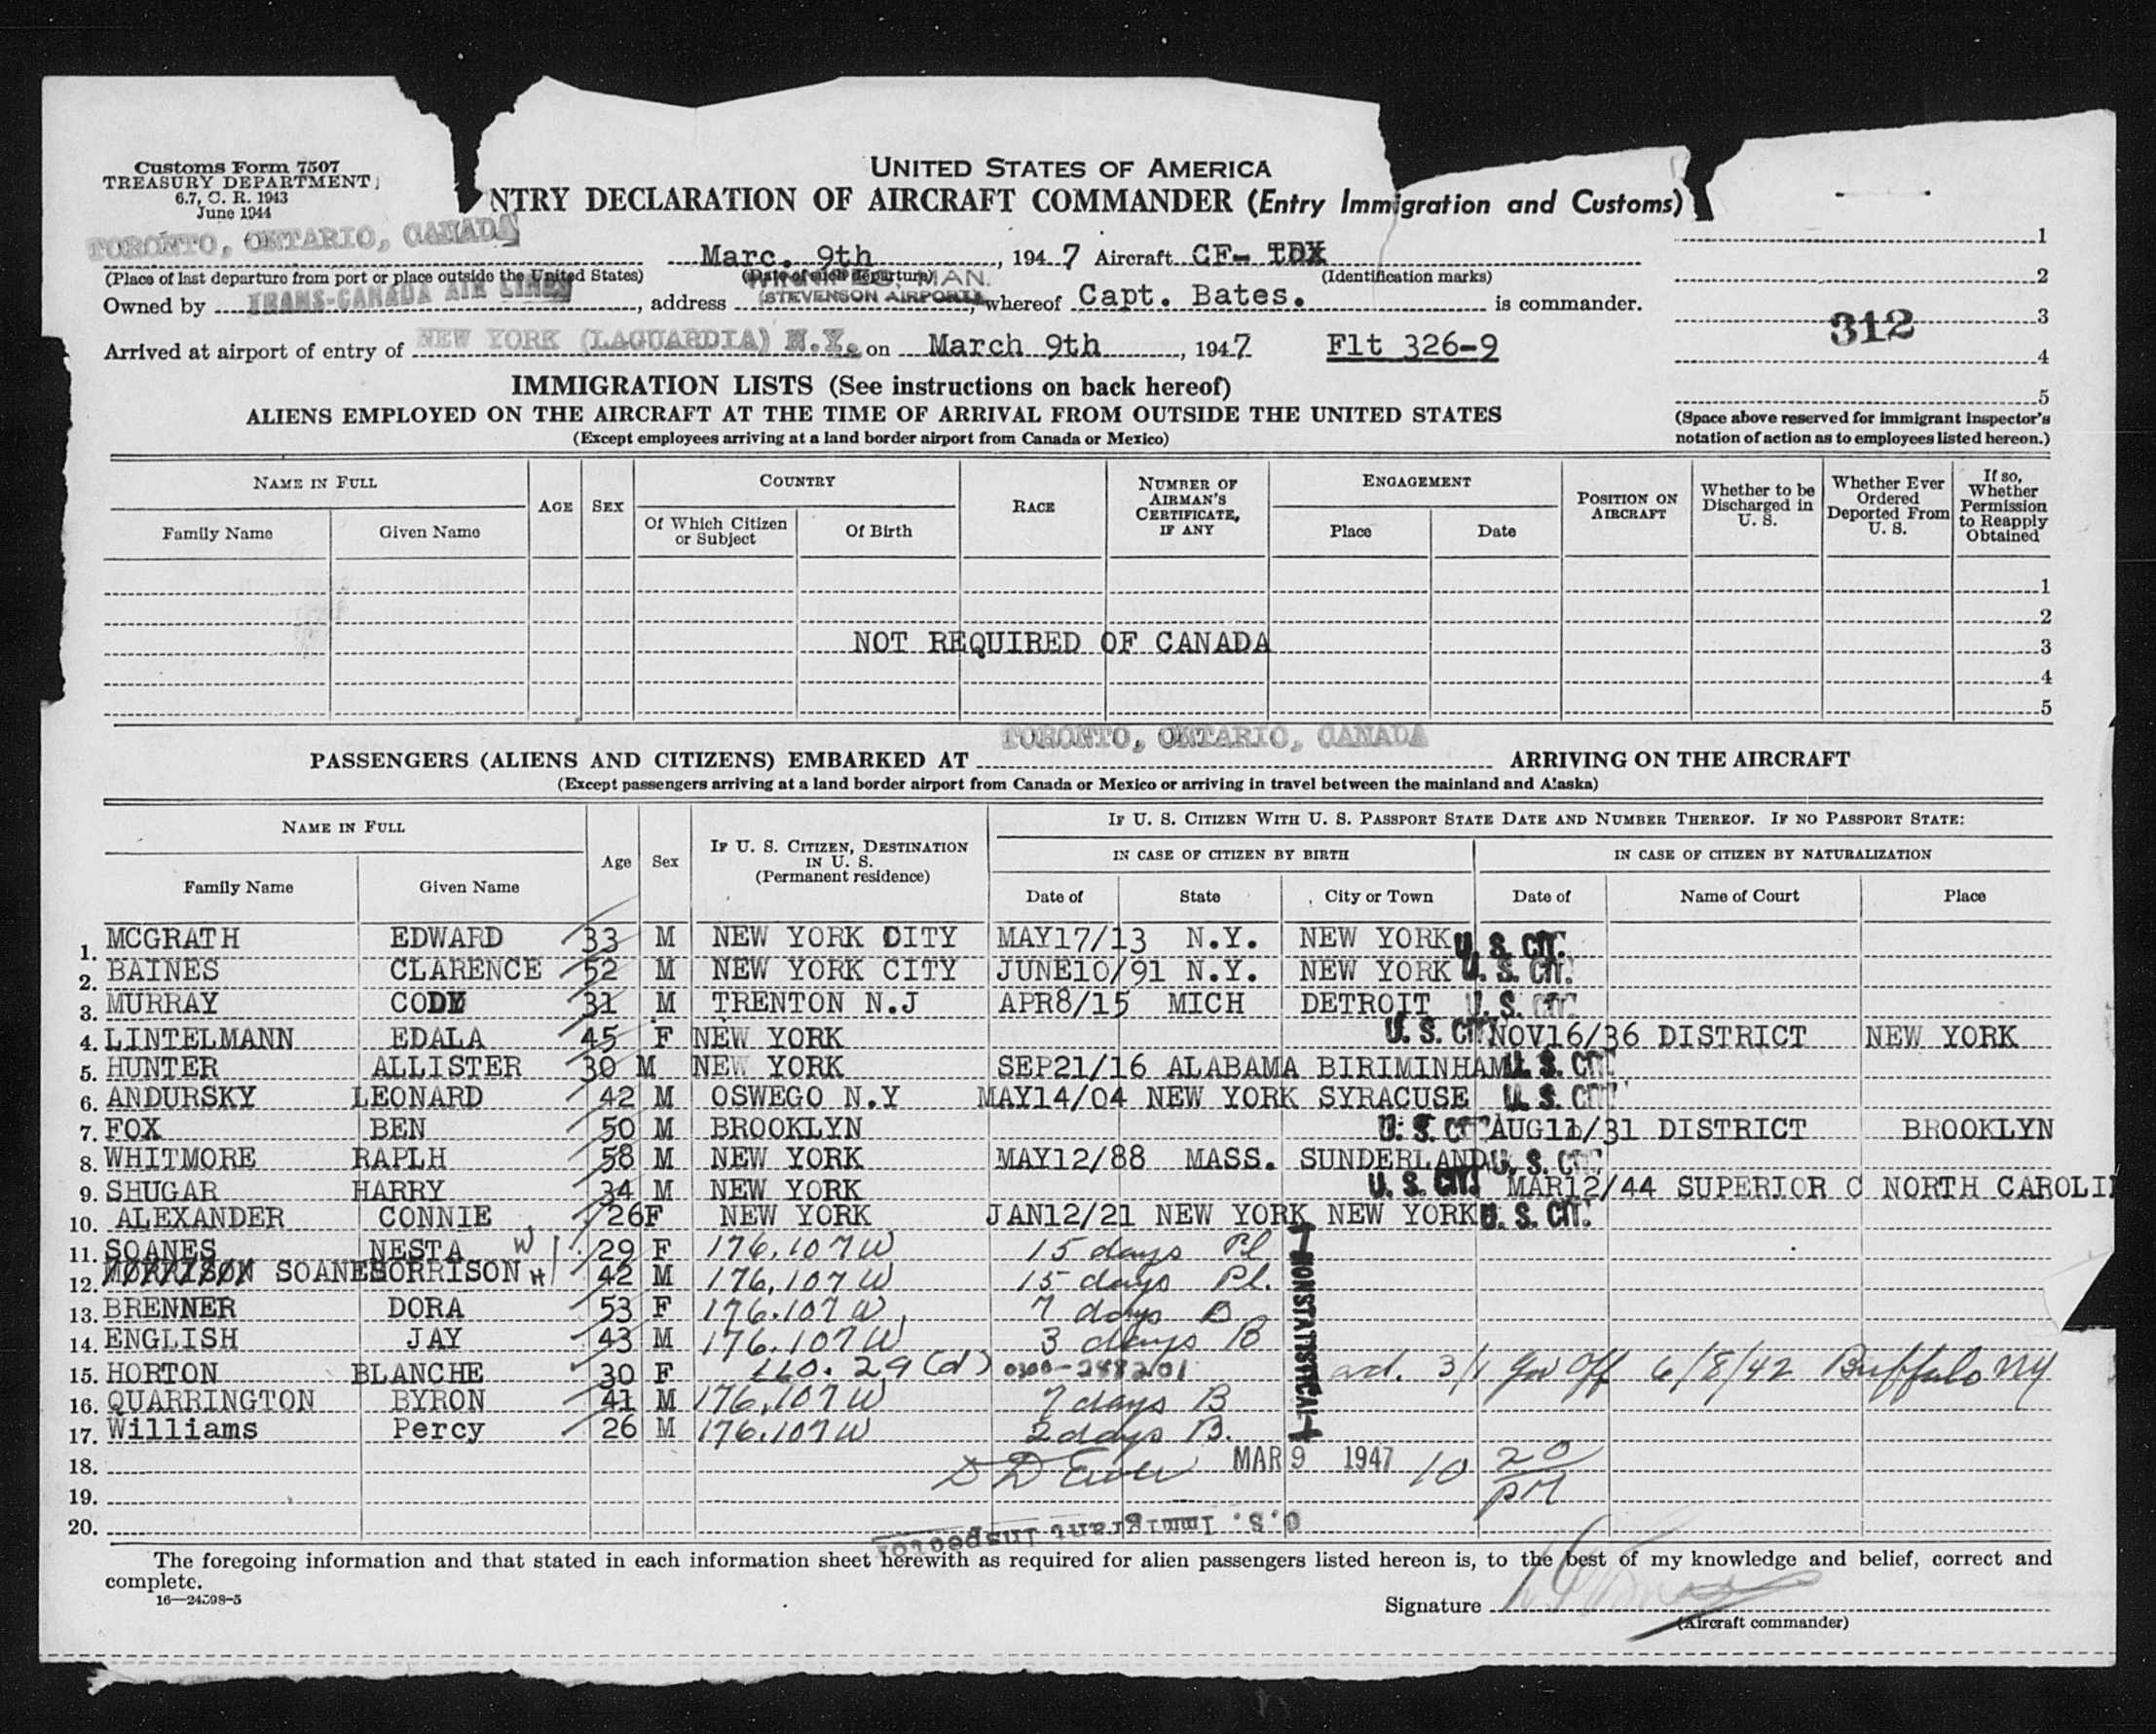 Customs Form 7507
TREASURY DEPARTMENT
6.7, C. R. 1943
June 1944
UNITED STATES OF AMERICA
NTRY DECLARATION OF AIRCRAFT COMMANDER (Entry Immigration and Customs)
TORONTO, ONTARIO, CANADA Marc. 9th, 1947 Aircraft CF- TDX
(Place of last departure from port or place outside the United States) (Date of such departure) (Identification marks)
WINNIPEG, MAN.
Owned by TRANS-CANADA AIR LINES, address (STEVENSON AIRPORT), whereof Capt. Bates. is commander.
Arrived at airport of entry of NEW YORK (LAGUARDIA) N.Y. on March 9th, 1947 Flt 326-9
1
2
3
312
4
5
(Space above reserved for immigrant inspector's
notation of action as to employees listed hereon.)
IMMIGRATION LISTS (See instructions on back hereof)
ALIENS EMPLOYED ON THE AIRCRAFT AT THE TIME OF ARRIVAL FROM OUTSIDE THE UNITED STATES
(Except employees arriving at a land border airport from Canada or Mexico)
NAME IN FULL
Family Name Given Name
AGE
SEX
COUNTRY
Of Which Citizen or Subject Of Birth
RACE
NUMBER OF AIRMAN'S CERTIFICATE, IF ANY
ENGAGEMENT
Place Date
POSITION ON AIRCRAFT
Whether to be Discharged in U. S.
Whether Ever Ordered Deported From U. S.
If so, Whether Permission to Reapply Obtained
1
2
NOT REQUIRED OF CANADA 3
4
5
TORONTO, ONTARIO, CANADA
PASSENGERS (ALIENS AND CITIZENS) EMBARKED AT ARRIVING ON THE AIRCRAFT
(Except passengers arriving at a land border airport from Canada or Mexico or arriving in travel between the mainland and Alaska)
NAME IN FULL
Family Name Given Name
Age
Sex
IF U. S. CITIZEN, DESTINATION IN U. S. (Permanent residence)
IF U. S. CITIZEN WITH U. S. PASSPORT STATE DATE AND NUMBER THEREOF. IF NO PASSPORT STATE:
IN CASE OF CITIZEN BY BIRTH IN CASE OF CITIZEN BY NATURALIZATION
Date of State City or Town Date of Name of Court Place
1. MCGRATH EDWARD 33 M NEW YORK CITY MAY17/13 N.Y. NEW YORK U. S. CIT.
2. BAINES CLARENCE 52 M NEW YORK CITY JUNE10/91 N.Y. NEW YORK U. S. CIT.
3. MURRAY CODY 31 M TRENTON N.J APR8/15 MICH DETROIT U. S. CIT.
4. LINTELMANN EDALA 45 F NEW YORK U. S. CIT. NOV16/36 DISTRICT NEW YORK
5. HUNTER ALLISTER 30 M NEW YORK SEP21/16 ALABAMA BIRIMINHAM U. S. CIT.
6. ANDURSKY LEONARD 42 M OSWEGO N.Y MAY14/04 NEW YORK SYRACUSE U. S. CIT.
7. FOX BEN 50 M BROOKLYN U. S. CIT. AUG11/31 DISTRICT BROOKLYN
8. WHITMORE RAPLH 58 M NEW YORK MAY12/88 MASS. SUNDERLAND U. S. CIT.
9. SHUGAR HARRY 34 M NEW YORK U. S. CIT. MAR12/44 SUPERIOR C NORTH CAROLI
10. ALEXANDER CONNIE 26F NEW YORK JAN12/21 NEW YORK NEW YORK U. S. CIT.
11. SOANES NESTA W 29 F 176.107W 15 days Pl
12. MORRISON SOANES MORRISON H 42 M 176.107W 15 days Pl.
13. BRENNER DORA 53 F 176.107W 7 days B
14. ENGLISH JAY 43 M 176.107W 3 days B
15. HORTON BLANCHE 30 F 110.29(d) 0300-288201 ad. 3/1 Gov Off 6/8/42 Buffalo NY
16. QUARRINGTON BYRON 41 M 176.107W 7 days B
17. Williams Percy 26 M 176.107W 2 days B.
NONSTATISTICAL
18. MAR 9 1947 10 20 PM
19.
20.
U.S. Immigrant Inspector
The foregoing information and that stated in each information sheet herewith as required for alien passengers listed hereon is, to the best of my knowledge and belief, correct and
complete.
16—24598-5
Signature
(Aircraft commander)